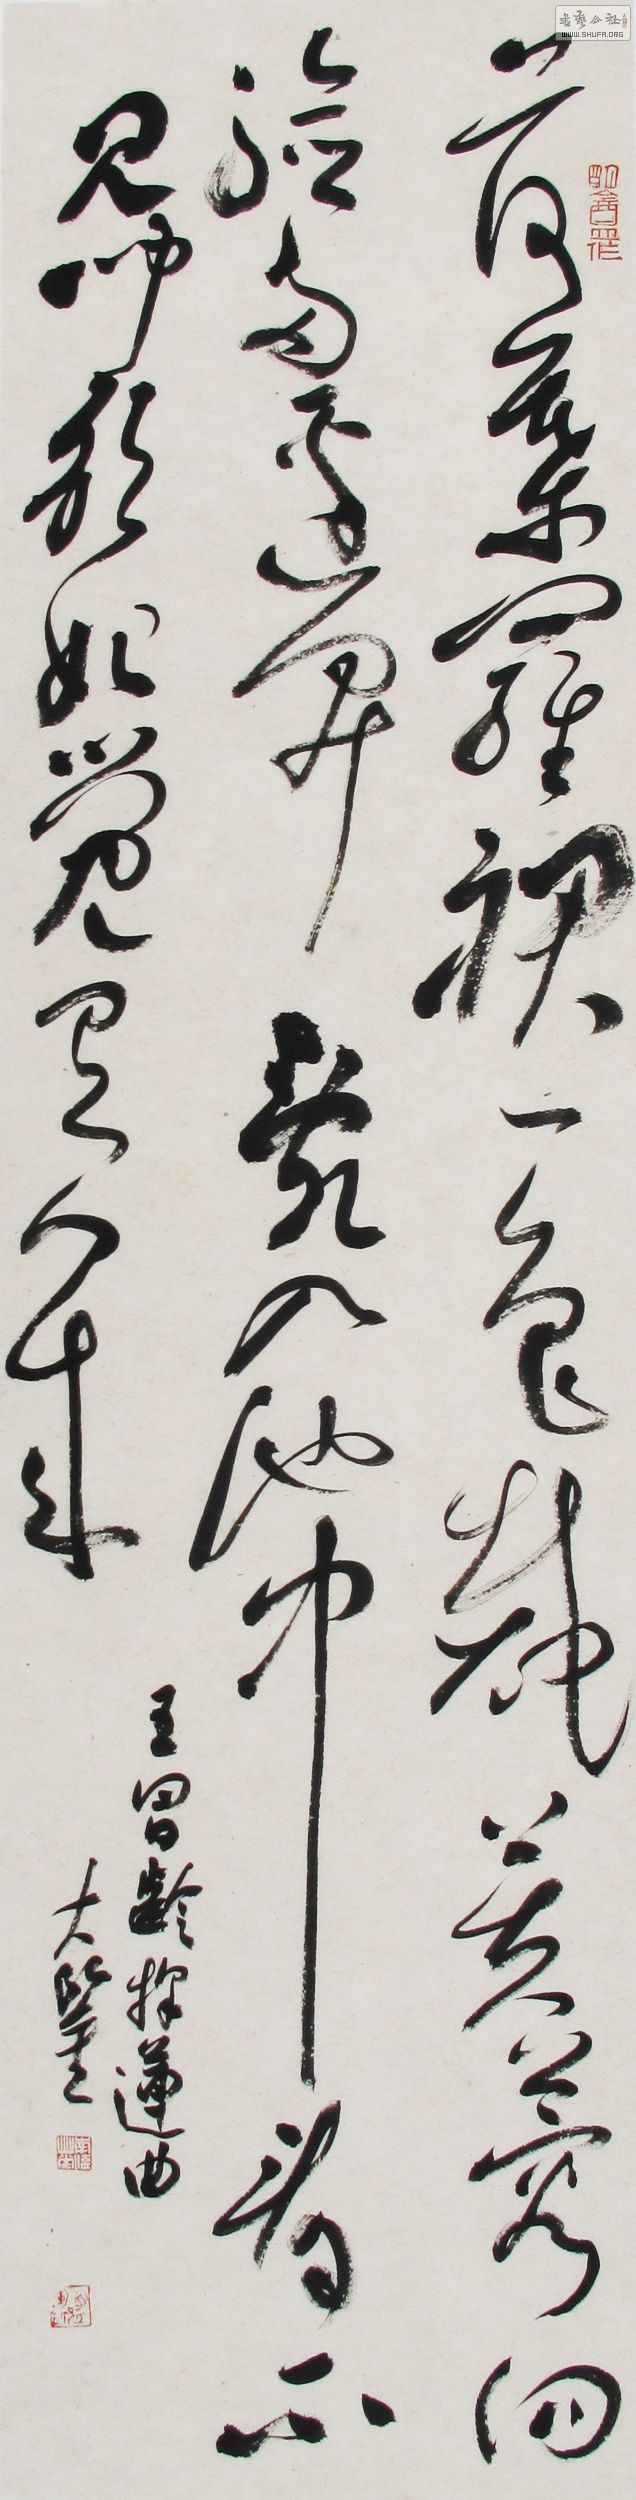 荷葉羅裙一色裁芙蓉向
臉兩邊開亂入池中看不
見聞歌始覺有人來
王昌齡採蓮曲
大
书艺公社
WWW.SHUFA.ORG